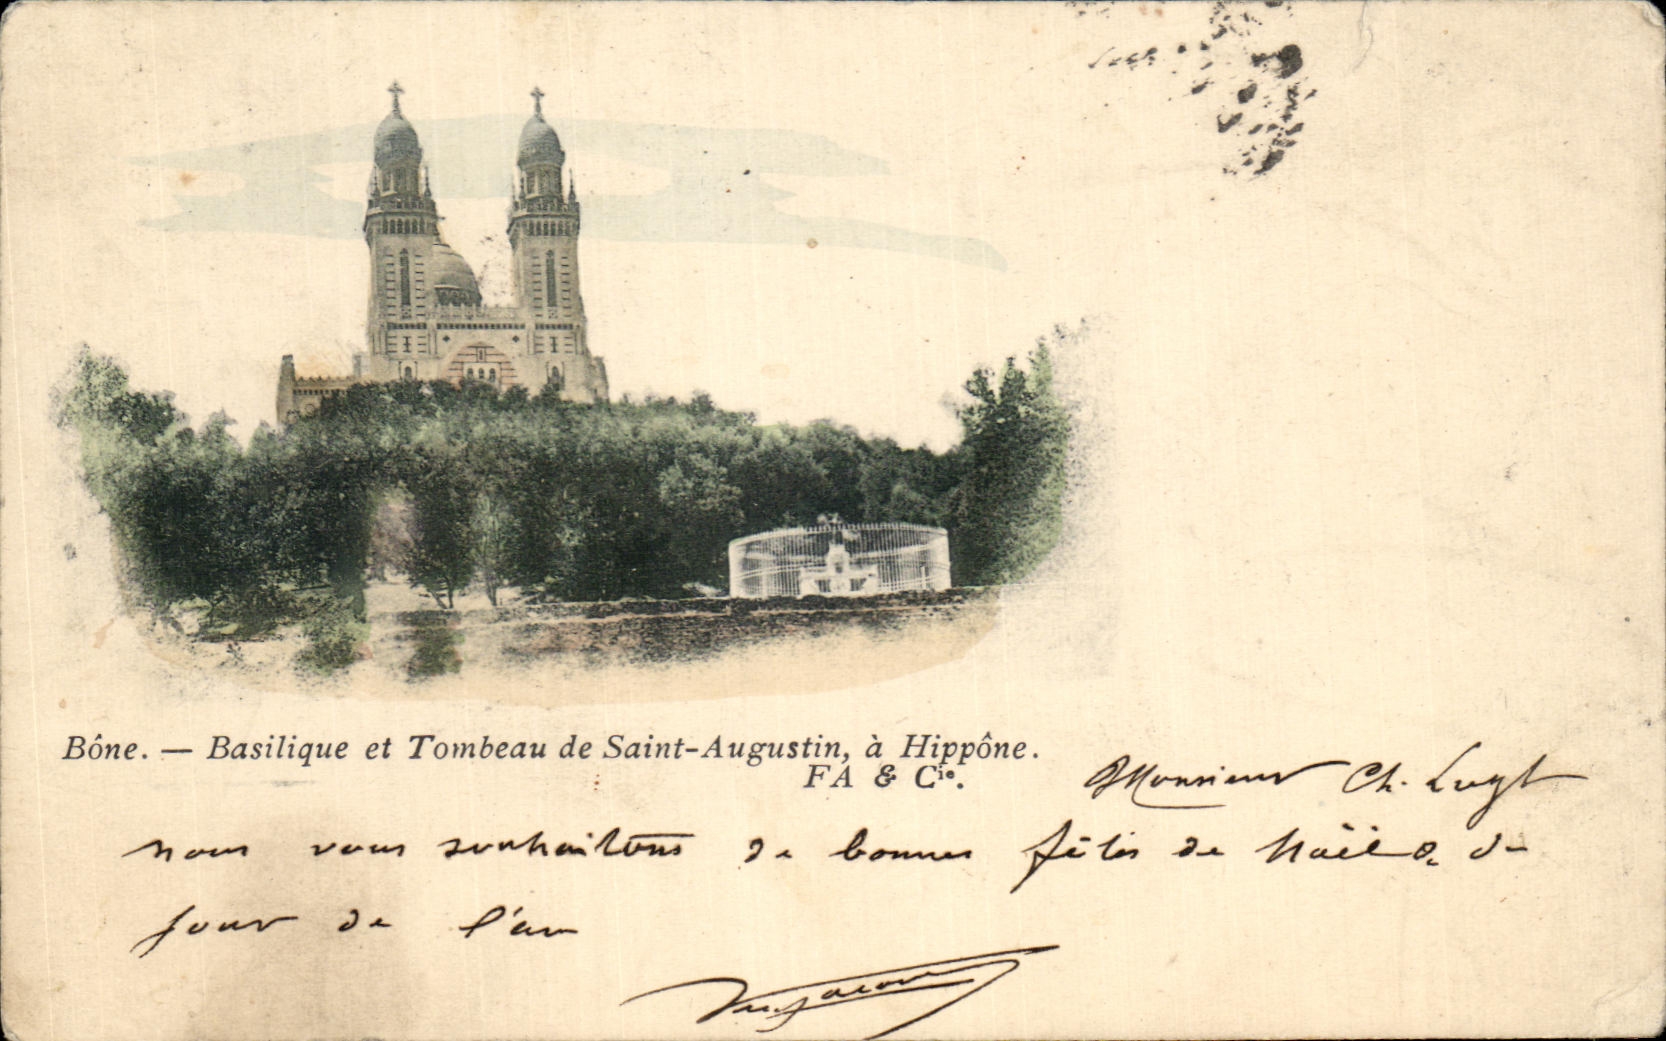 Bône. — Basilique et Tombeau de Saint-Augustin, à Hippône.
FA & Cie.
Monsieur Ch. Luyt
nous vous souhaitons de bonnes fêtes de Noël & de
jour de l'an